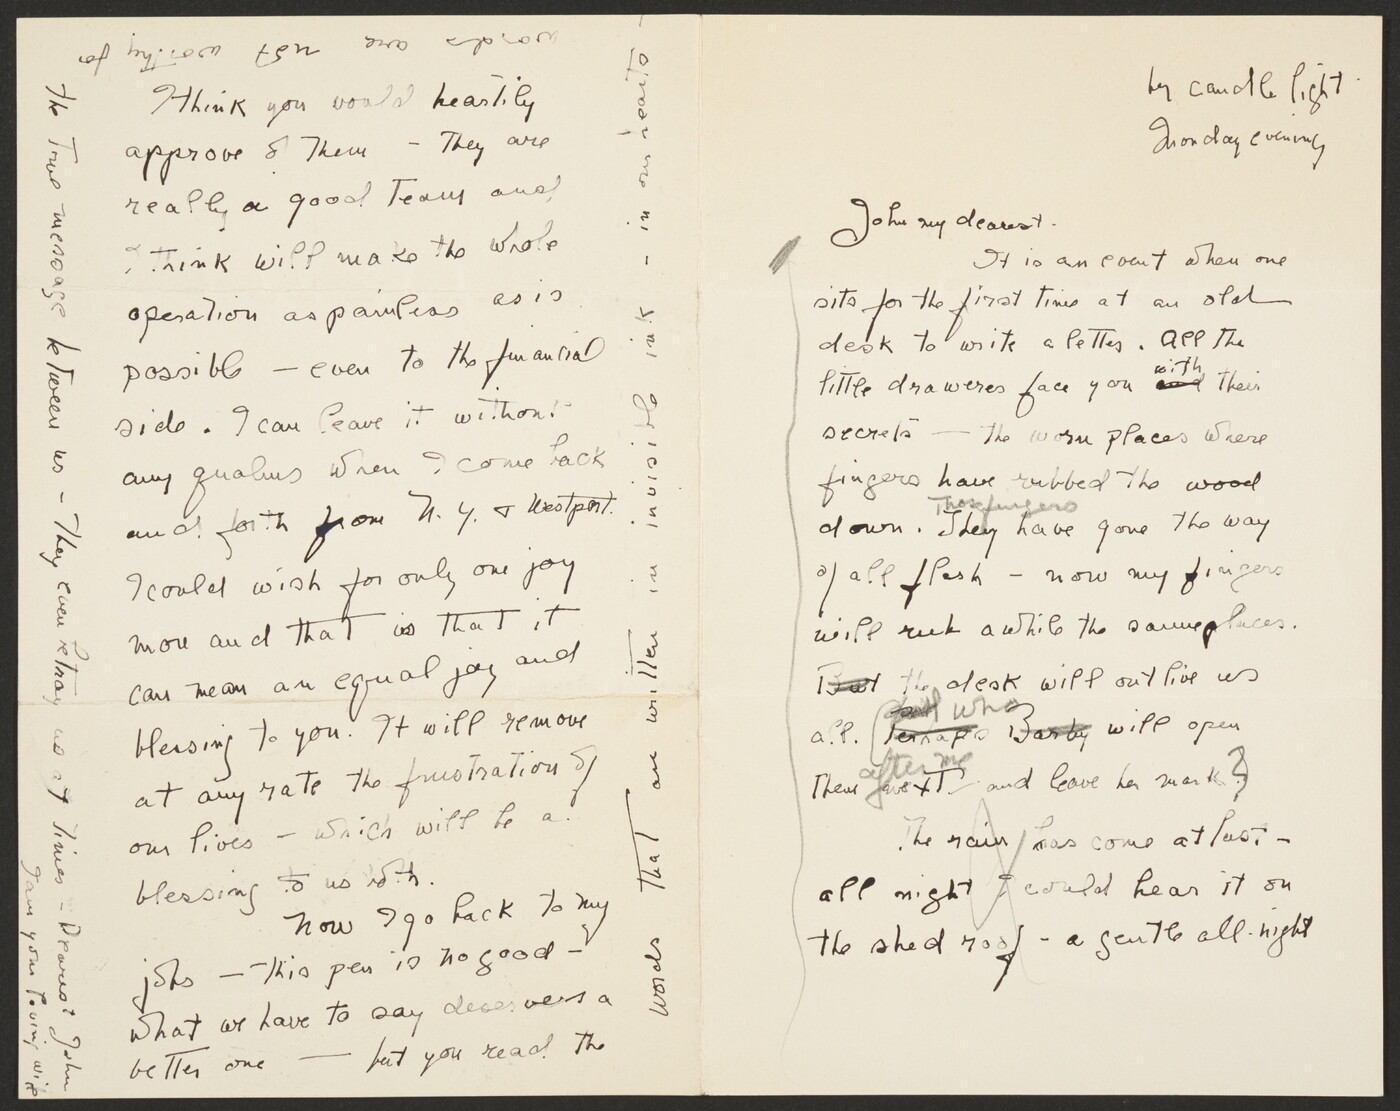 by candle light
Monday evening
John my dearest.
It is an event when one
sits for the first time at an old
desk to write a letter. All the
little draweres face you and with their
secrets — the worn places where
fingers have rubbed the wood
down. They Those fingers have gone the way
of all flesh — now my fingers
will rub awhile the same places.
But the desk will outlive us
all. Perhaps Barby and who will open
them next after me and leave her mark?
The rain has come at last —
all night I could hear it on
the shed roof — a gentle all-night
I think you would heartily
approve of them — They are
really a good team and
I think will make the whole
operation as painless as is
possible — even to the financial
side. I can leave it without
any qualms when I come back
and forth from N.Y. & Westport.
I could wish for only one joy
more and that is that it
can mean an equal joy and
blessing to you. It will remove
at any rate the frustration of
our lives — which will be a
blessing to us both.
Now I go back to my
jobs — this pen is no good —
what we have to say deserves a
better one — but you read the
words that are written in invisible ink — in our hearts —
words are not worthy for
the true message between us — They even betray us at times — Dearest John
I am your loving wife